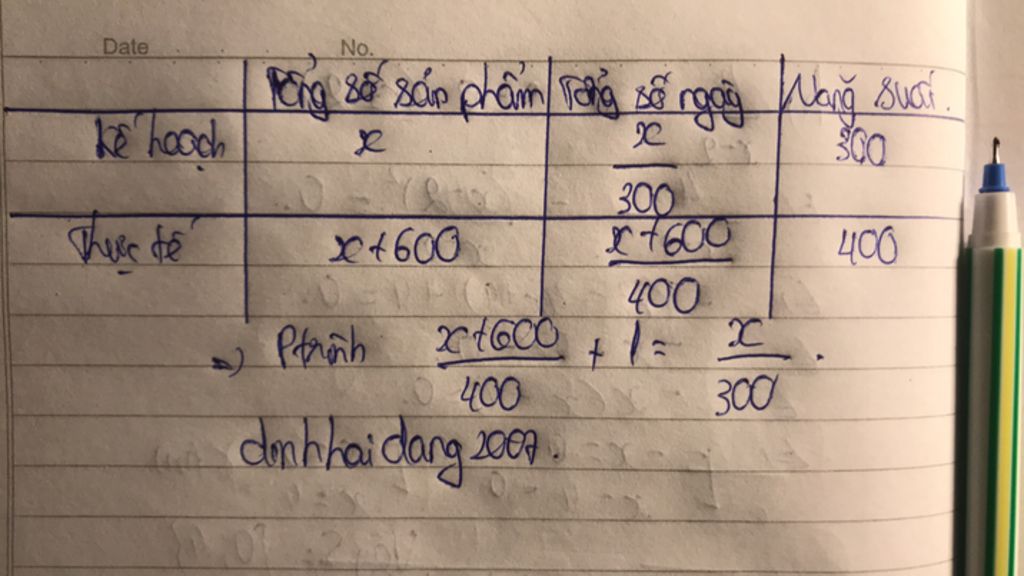 Date No.
Tổng số sản phẩm Tổng số ngày Năng suất.
Kế hoạch x x/300 300
Thực tế x+600 x+600/400 400
=> Ptrình x+600/400 + 1 = x/300.
dinhhaidang2007.